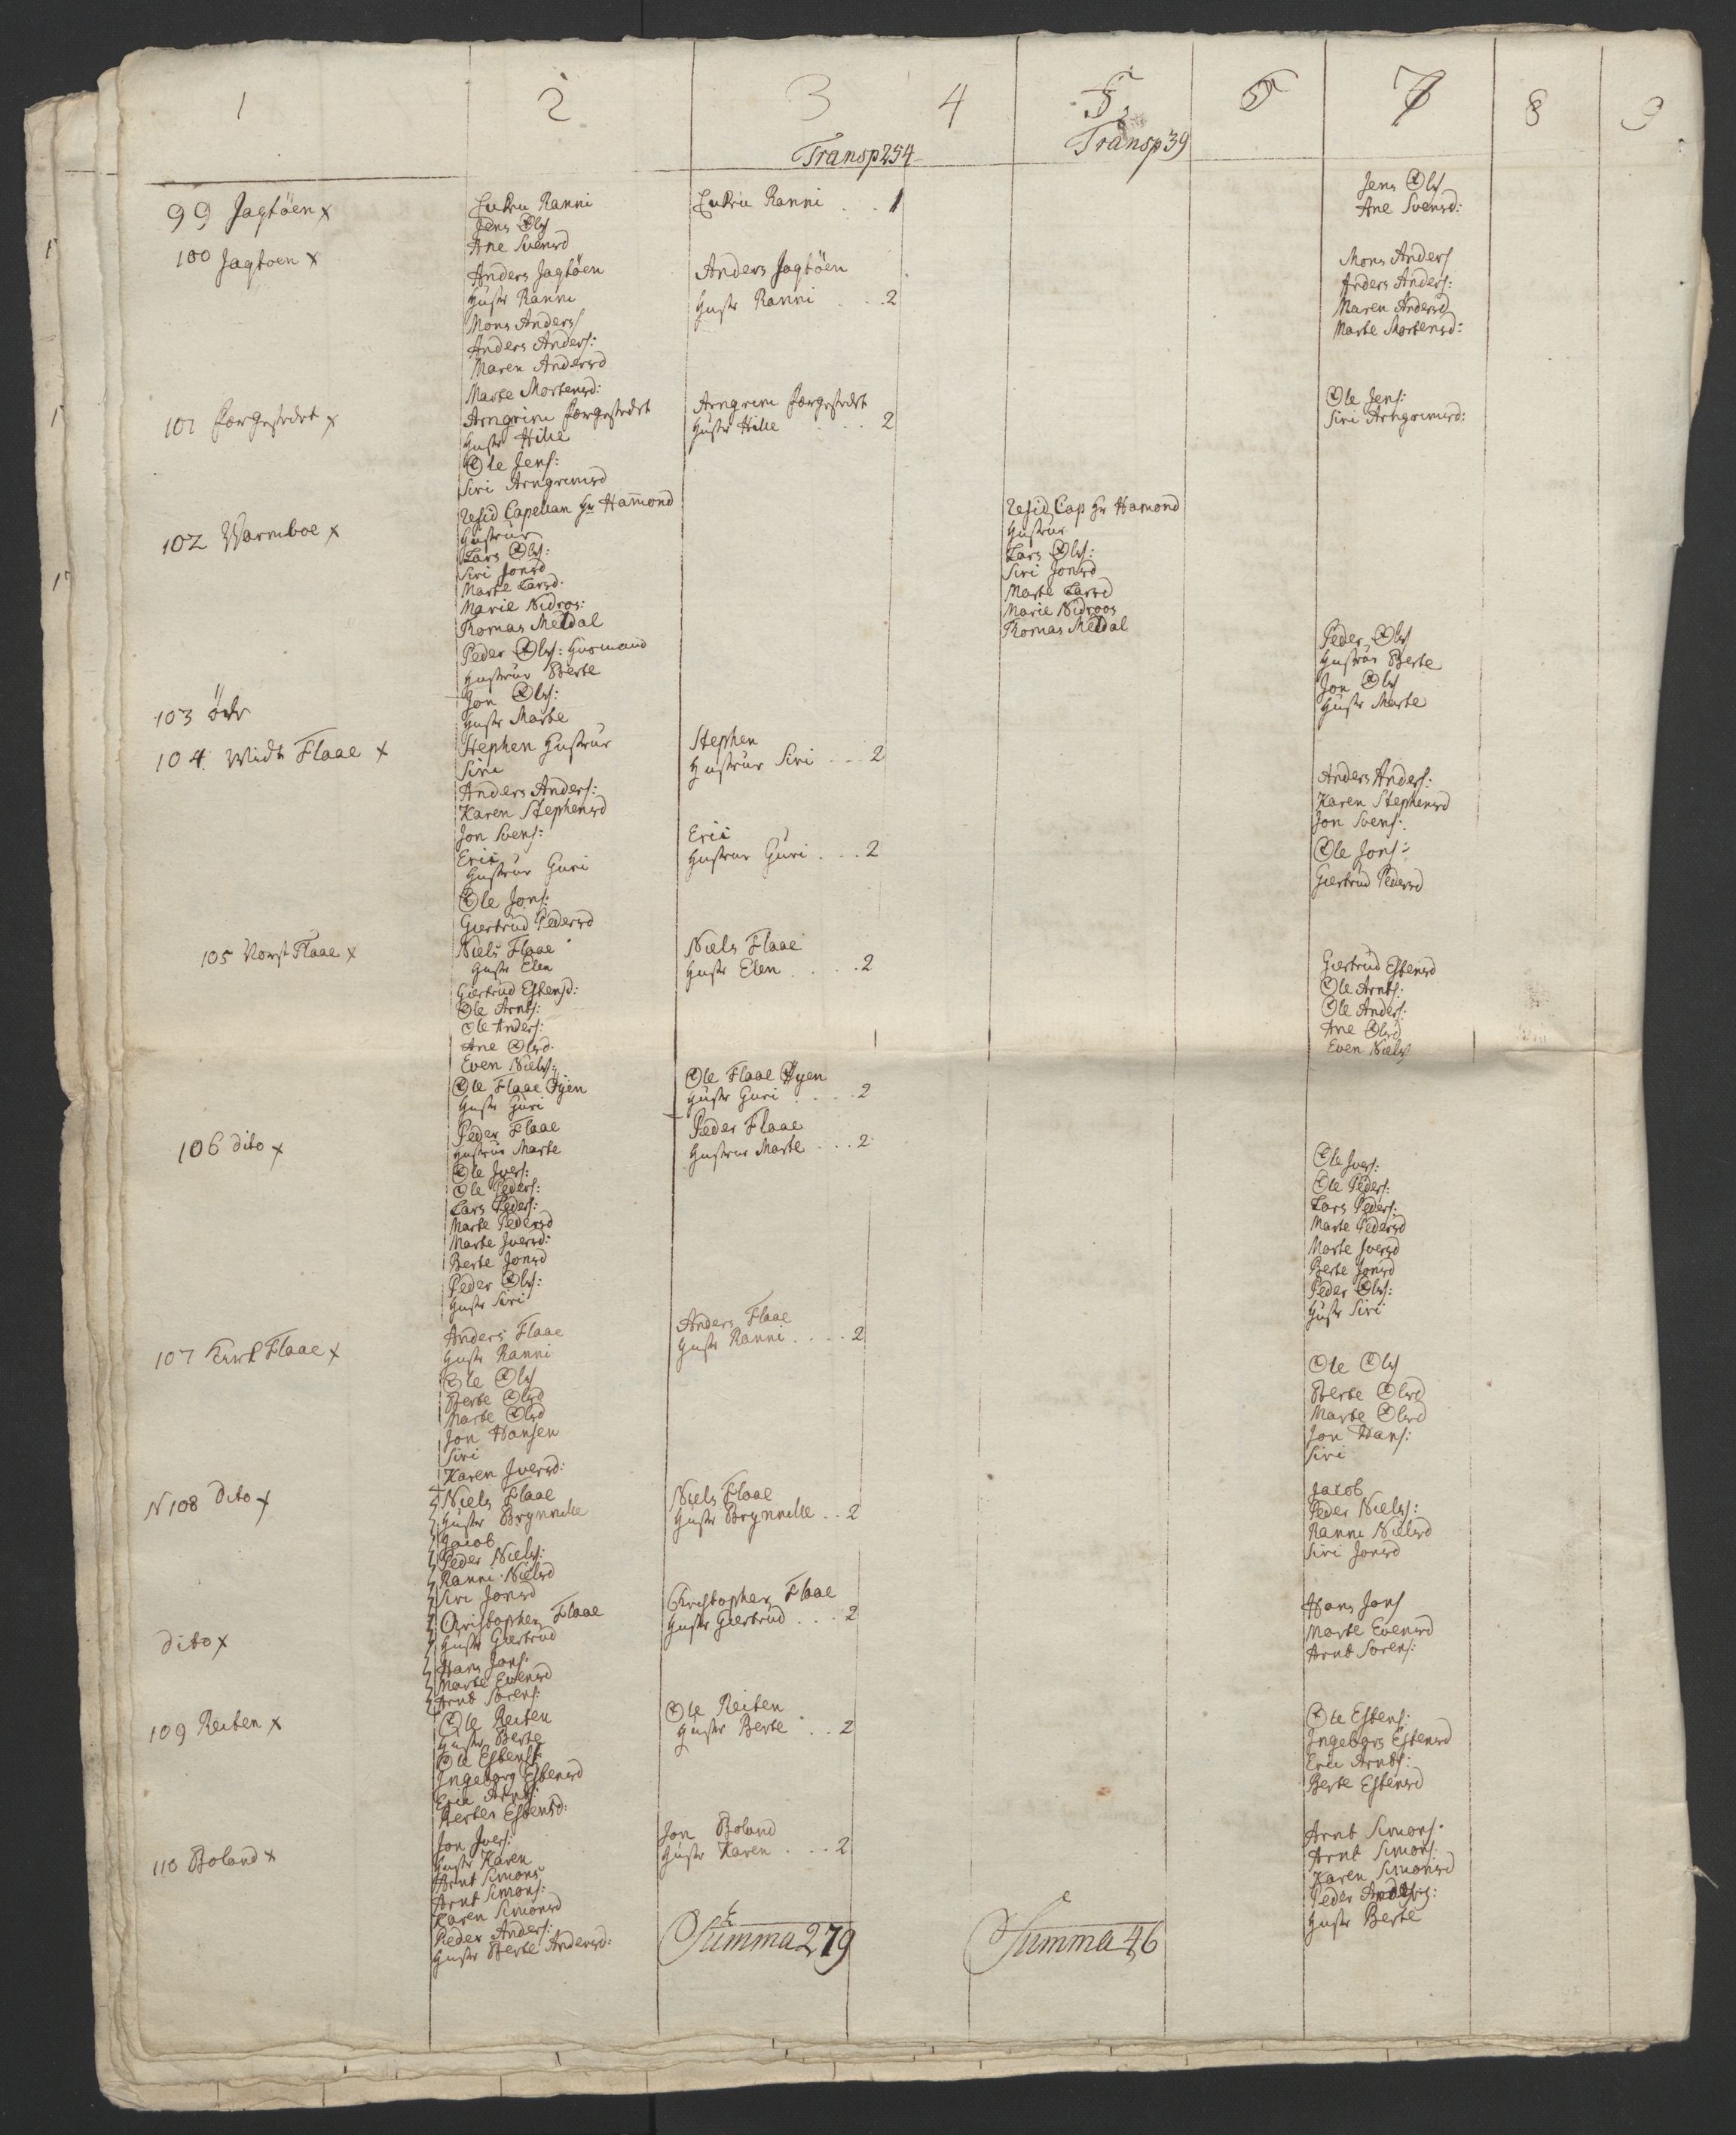 1 2 3 4 5 6 7 8 9
Transp 254 Transp 39
99 Jagtöen x
100 Jagtoen x
101 x
102 Warmboe x
103 öde
104 Widt Flaae x
105 Flaae x
106 dito x
107 Flaae x
N 108 Dito x
dito x
109 Reiten x
110 Boland x
Ranni
Jens Ols
Ane Svensd
Anders Jagtöen
Hustr Ranni
Mons Anders
Anders Anders:
Maren Andersd
Marte Mortensd:
Arngrim
Hustr
Ole Jens:
Siri Arngrimsd
Resid Capellan Hr Hammond
Hustrue
Lars Ols:
Siri Jonsd
Marte Larsd:
Marie Nidros:
Thomas Meldal
Peder Ols: Husmand
Hustrue Berte
Jon Ols:
Hustr Marte
Stephen Hustrue
Siri
Anders Anders:
Karen Stephensd
Jon Svens:
Eric
Hustrue Guri
Ole Jons:
Giertrud Pedersd
Niels Flaae
Hustr Elen
Giertrud Estensd:
Ole Arnts:
Ole Anders:
Ane Olsd
Even Niels:
Ole Flaae Öyen
Hustr Guri
Peder Flaae
Hustrue Marte
Ole Ivers:
Ole Peders:
Lars Peders:
Marte Pedersd
Marte Iversd:
Berte Jonsd
Peder Ols:
Hustr Siri
Anders Flaae
Hustr Ranni
Ole Ols
Berte Olsd
Marte Olsd
Jon Hansen
Siri
Karen Iversd:
Niels Flaae
Hustr Brynnille
Jacob
Peder Niels:
Ranni Nielsd
Siri Jonsd
Christopher Flaae
Hustr Giertrud
Hans Jons:
Marte Evensd
Arnt Sorens:
Ole Reiten
Hustr Berte
Ole Estens:
Ingeborg Estensd
Eric Arnts:
Berte Estensd:
Jon Ivers:
Hustr Karen
Arnt Simons
Arnt Simons:
Karen Simonsd
Peder Anders:
Hustr Berte Andersd:
Ranni . . 1
Anders Jagtöen
Hustr Ranni . . . 2
Arngrim
Hustr . . . 2
Stephen
Hustrue Siri . . . 2
Eric
Hustrue Guri . . . 2
Niels Flaae
Hustr Elen . . . . 2
Ole Flaae Öyen
Hustr Guri . . . . 2
Peder Flaae
Hustrue Marte . . . 2
Anders Flaae
Hustr Ranni . . . . 2
Niels Flaae
Hustr Brynnille . . 2
Christopher Flaae
Hustr Giertrud . . . 2
Ole Reiten
Hustr Berte . . . 2
Jon Boland
Hustr Karen . . . 2
Summa 279
Resid Cap Hr Hamond
Hustrue
Lars Ols:
Siri Jonsd
Marte Larsd
Marie Nidroos
Thomas Meldal
Summa 46
Jens Ols
Ane Svensd:
Mons Anders
Anders Anders:
Maren Andersd
Marte Mortensd:
Ole Jens:
Siri Arngrimsd:
Peder Ols
Hustrue Berte
Jon Ols
Hustr Marte
Anders Anders:
Karen Stephensd
Jon Svens:
Ole Jons:
Giertrud Pedersd
Giertrud Estensd
Ole Arnts:
Ole Anders:
Ane Olsd
Even Niels
Ole Ivers:
Ole Peders:
Lars Peders:
Marte Pedersd
Marte Iversd
Berte Jonsd
Peder Ols:
Hustr Siri
Ole Ols
Berte Olsd
Marte Olsd
Jon Hans:
Siri
Jacob
Peder Niels:
Ranni Nielsd
Siri Jonsd
Hans Jons
Marte Evensd
Arnt Sorens:
Ole Estens:
Ingeborg Estensd
Eric Arnts:
Berte Estensd
Arnt Simons:
Arnt Simons:
Karen Simonsd
Peder Anders:
Hustr Berte